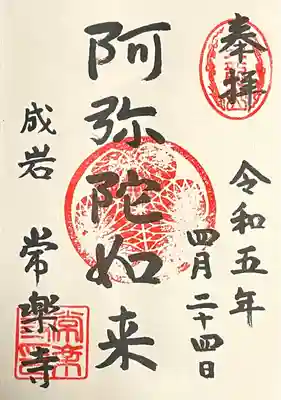 奉拝
令和五年
四月二十四日
阿弥陀如来
成岩 常楽寺